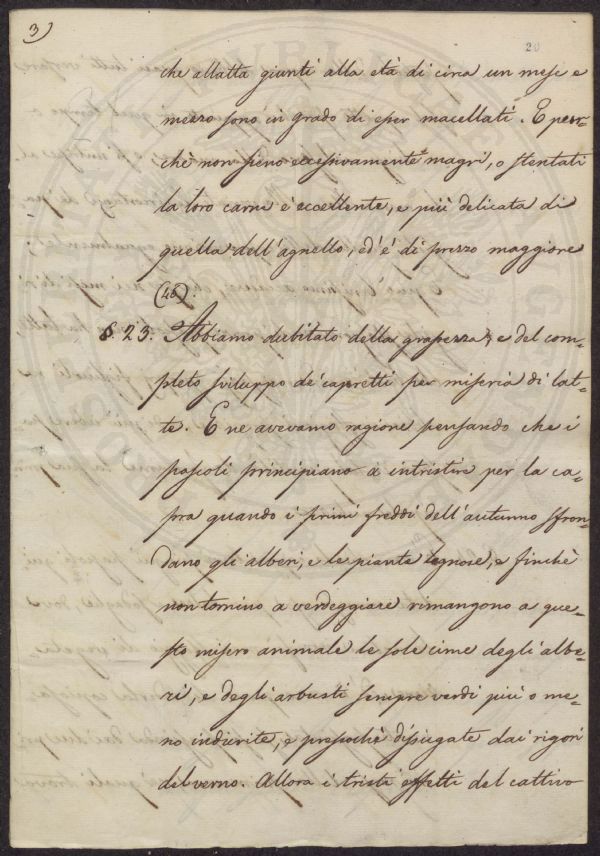 3)
20
che allatta giunti alla età di circa un mese e
mezzo sono in grado di esser macellati. E per-
chè non sieno eccessivamente magri, o stentati
la loro carne è eccellente, e più delicata di
quella dell'agnello, ed'è di prezzo maggiore
(46).
§. 23. Abbiamo dubitato della grassezza, e del com-
pleto sviluppo de' capretti per miseria di lat-
te. E ne avevamo ragione pensando che i
pascoli principiano a intristire per la ca-
pra quando i primi freddi dell'autunno sfron-
dano gli alberi, e le piante legnose, e finchè
non tornino a verdeggiare rimangono a que-
sto misero animale le sole cime degli albe-
ri, e degli arbusti sempre verdi più o me-
no indurite, e pressochè disugate dai rigori
del verno. Allora i tristi effetti del cattivo